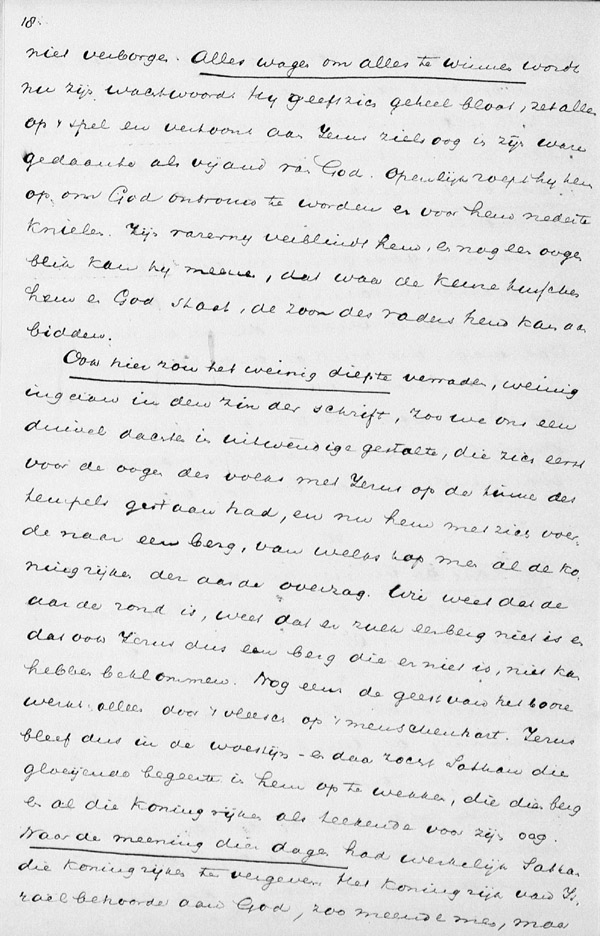 18.
niet verborgen. Alles wagen om alles te winnen wordt
nu zijn wachtwoord. Hij geeft zich geheel bloot, zet alles
op 't spel en vertoont aan Jezus zielsoog in zijn ware
gedaante als vijand van God. Openlijk roept hij hem
op, om God ontrouw te worden en voor hem neder te
knielen. Zijn razernij verblindt hem, en nog een oogen
blik kan hij meenen, dat waar de keuze tusschen
hem en God staat, de zoon des vaders hem kan aan
bidden.
Ook hier zou het weinig diepte verraden, weinig
ingaan in den zin der schrift, zoo we ons een
duivel dachten in uitwendige gestalte, die zich eerst
voor de oogen des volks met Jezus op de tinne des
tempels gestaan had, en nu hem met zich voer
de naar een berg, van welks top men al de ko
ningrijken der aarde overzag. Wie weet dat de
aarde rond is, weet dat er zulk een berg niet is en
dat ook Jezus dus een berg die er niet is, niet kan
hebben beklommen. Nog eens de geest van het booze
werkt alleen door 't vleesch op 't menschenhart. Jezus
bleef dus in de woestijn - en daar zocht Sathan die
gloeijende begeerte in hem op te wekken, die dien berg
en al die koningrijken als teekende voor zijn oog.
Naar de meening dier dagen had werkelijk Sathan
die koningrijken te vergeven. Het koningrijk van Is
raël behoorde aan God, zoo meende men, maar